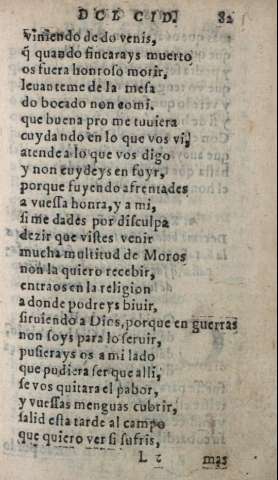 DCL CID. 82
viniendo de do venis,
q̃ quando fincarays muerto
os fuera honroso morir,
leuanteme de la mesa
do bocado non comi.
que buena pro me tuuiera
cuydando en lo que vos vi,
atende a lo que vos digo
y non cuydeys en fuyr,
porque fuyendo afrentades
a vuessa honra, y a mi,
si me dades por disculpa
dezir que vistes venir
mucha multitud de Moros
non la quiero recebir,
entraos en la religion
a donde podreys biuir,
siruiendo a Dios, porque en guerras
non soys para lo seruir,
pusierays os a mi lado
que pudiera ser que alli,
se vos quitara el pabor,
y vuessas menguas cubrir,
salid esta tarde al campo
que quiero ver si sufris,
L 2 mas